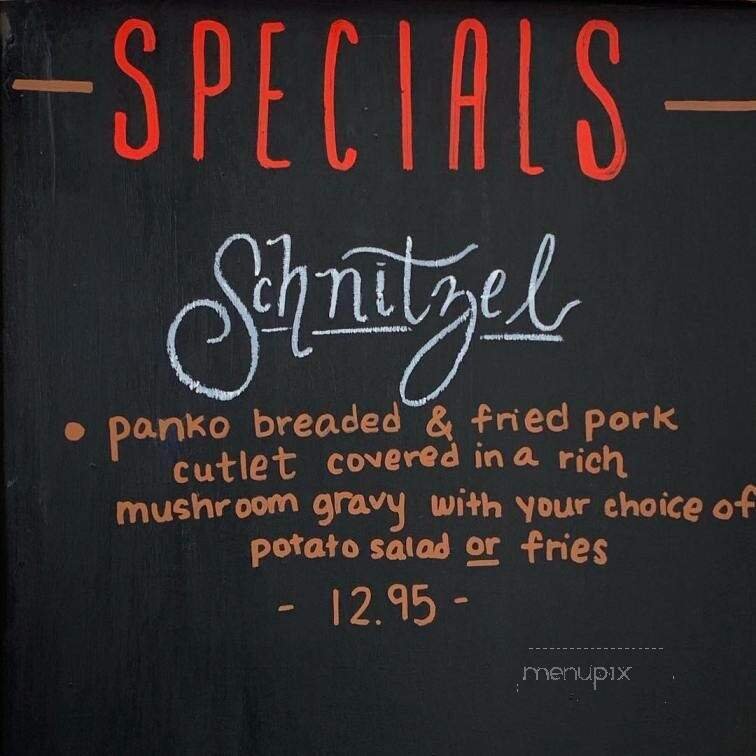 SPECIALS
Schnitzel
• panko breaded & fried pork
cutlet covered in a rich
mushroom gravy with your choice of
potato salad or fries
- 12.95 -
menupix